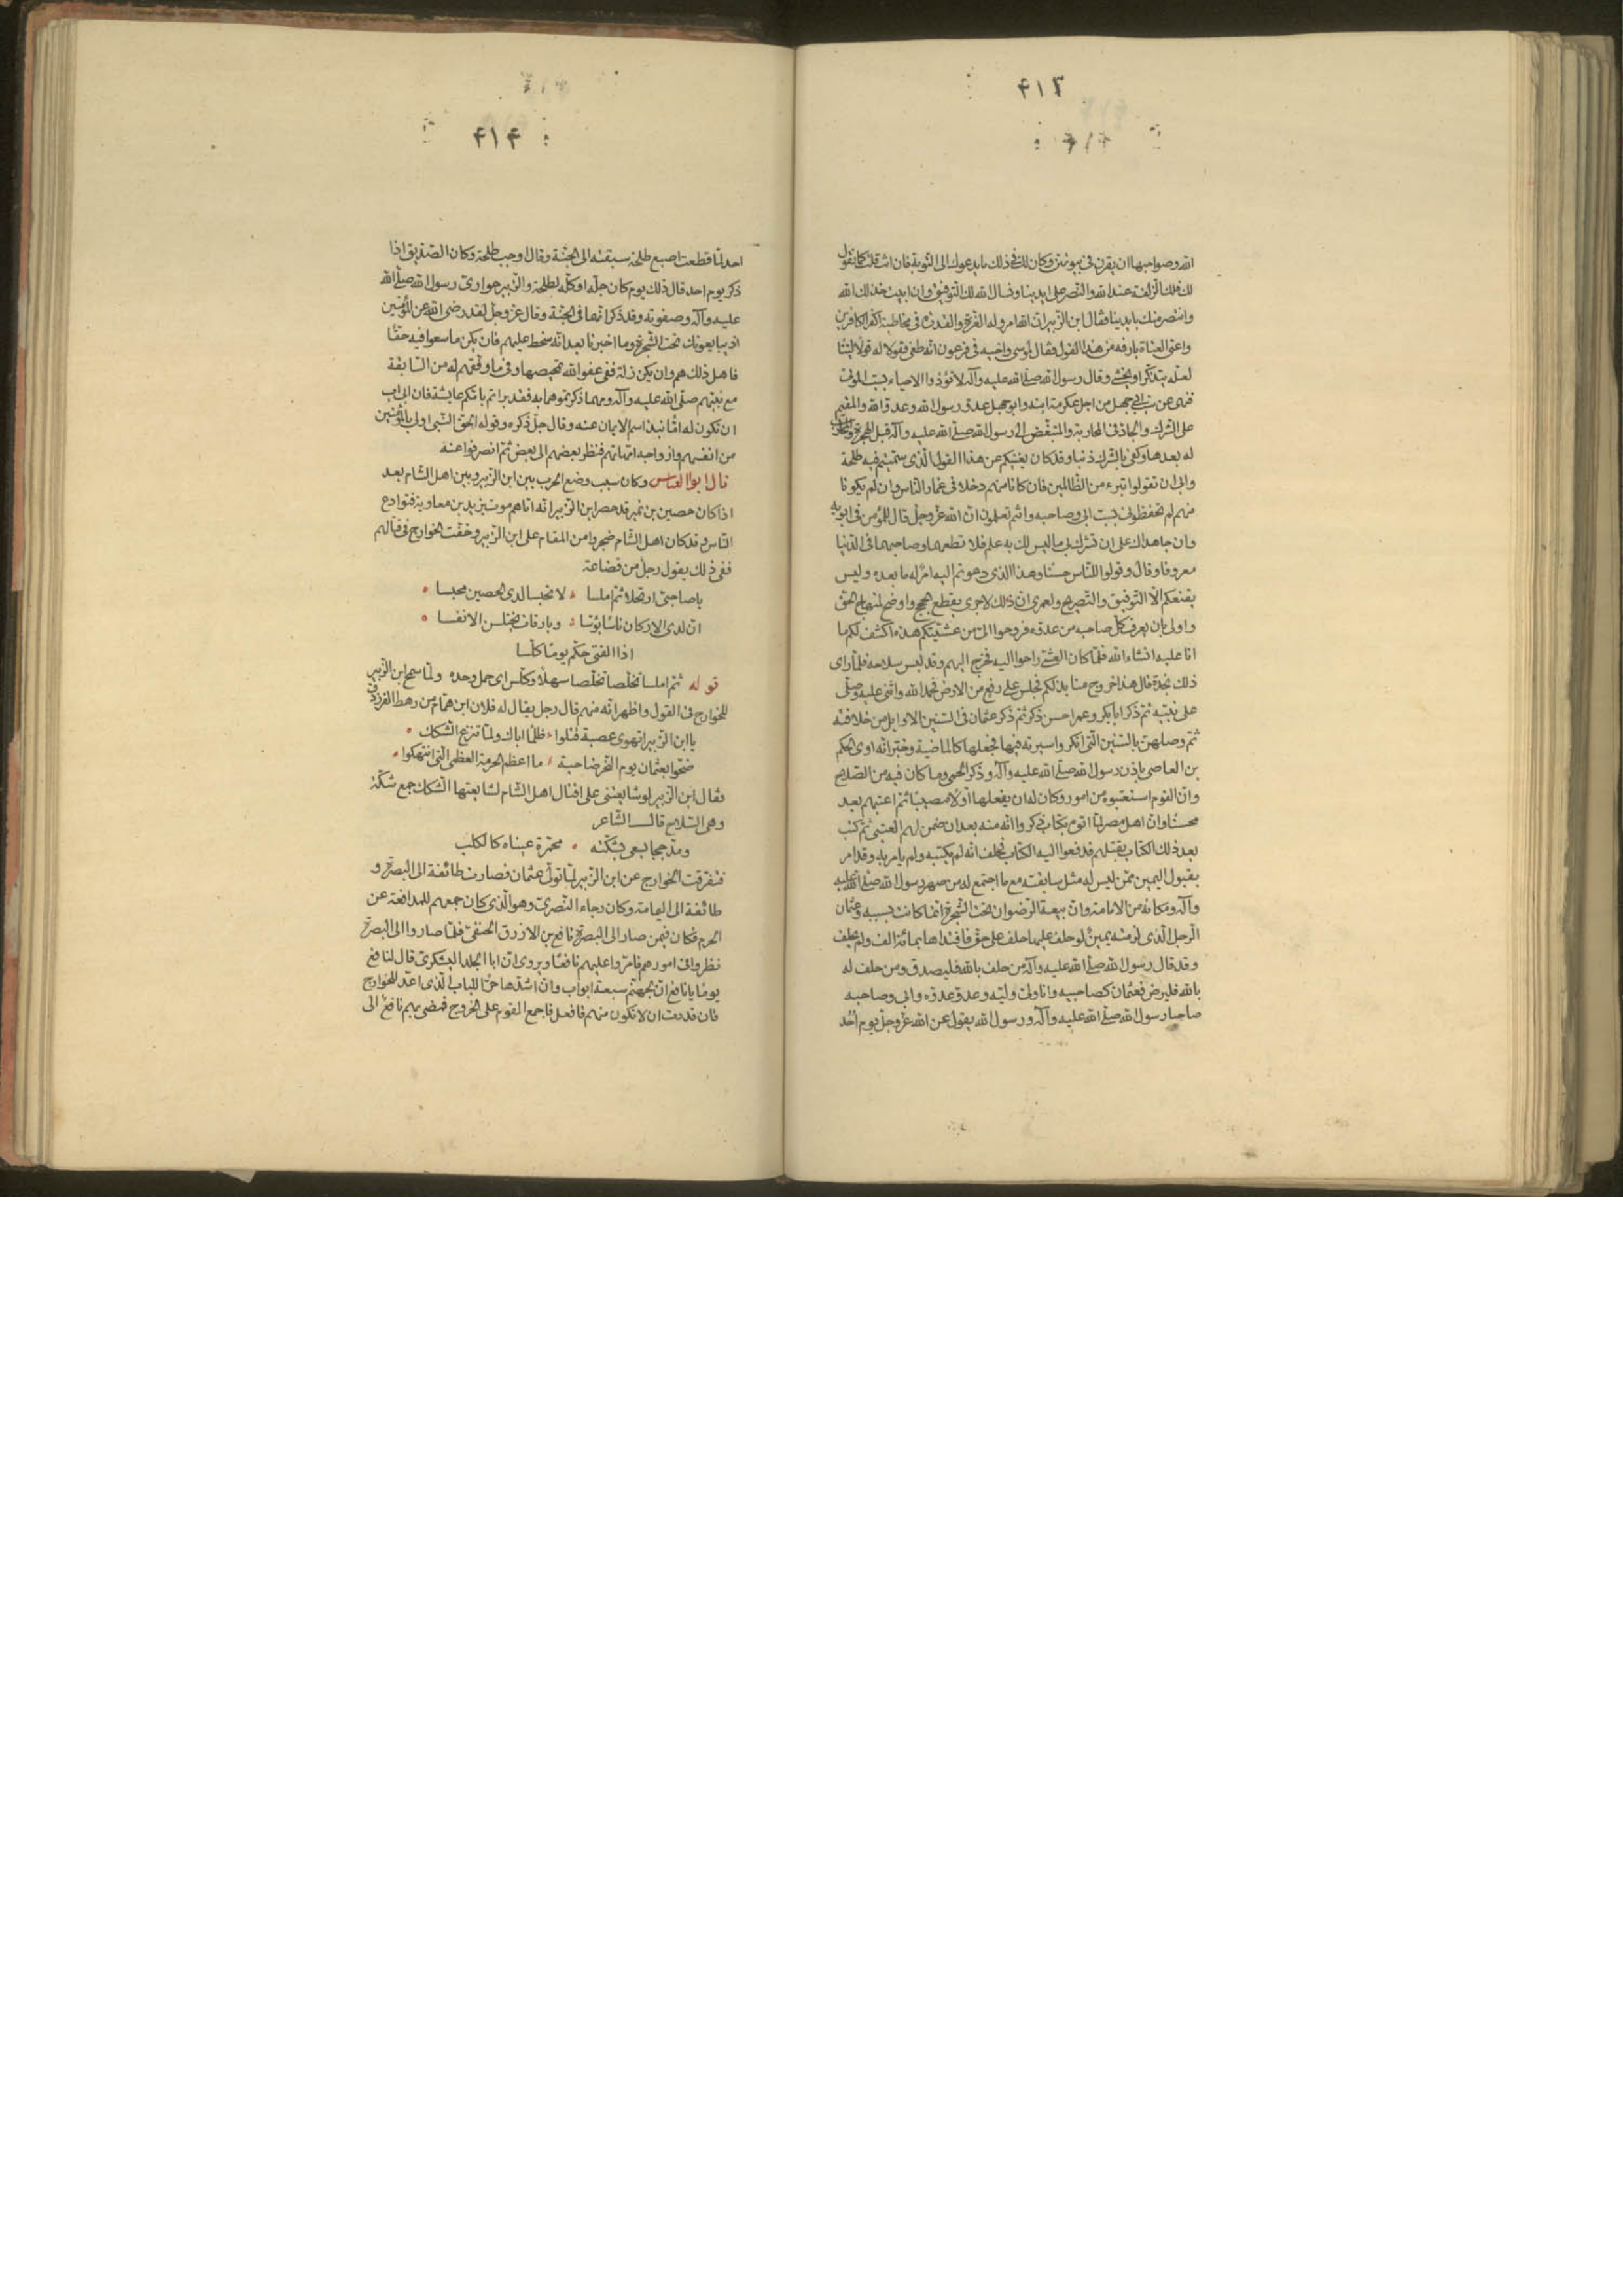 ۴۱۳
الله وصواحبها ان يقرن في بيوتهن وكان لك في ذلك ما يدعوك الى التوبة فان انت قلت كما نقول
فلك الزلفة عند الله والنصر على ايدينا ونسال الله لك التوفيق وان ابيت خذلك الله
وانتصر منك بايدينا فقال ابن الزبير ان الله امر وله العزة والقدرة في مخاطبة اكفر الكافرين
واعتى العتاة بارفه من هذا القول فقال لموسى واخيه في فرعون انه طغى فقولا له قولا لينا
لعله يتذكر او يخشى وقال رسول الله صلى الله عليه وآله لا تؤذوا الاحياء بسب الموتى
فنهى عن سب ابي جهل من اجل عكرمة ابنه وابو جهل عدو رسول الله وعدو الله والمقيم
على الشرك والجاد في المحاربة والمتبغض الى رسول الله صلى الله عليه وآله قبل الهجرة والمحارب
له بعدها وكفى بالشرك ذنبا وقد كان يغنيكم عن هذا القول الذي سميتم فيه طلحة
وابي ان تقولوا تبرء من الظالمين فان كانا منهم دخلا في غمار الناس وان لم يكونا
منهم لم تحفظوني بسب ابي وصاحبه وانتم تعلمون ان الله عز وجل قال للمؤمن في ابويه
وان جاهداك على ان تشرك بي ما ليس لك به علم فلا تطعهما وصاحبهما في الدنيا
معروفا وقال وقولوا للناس حسنا وهذا الذي دعوتم اليه امر له ما بعده وليس
يقنعكم الا التوفيق والتصريح ولعمري ان ذلك لاحرى بقطع الحجج واوضح لمنهاج الحق
واولى بان يعرف كل صاحبه من عدوه فروحوا الي من عشيتكم هذه اكشف لكم ما
انا عليه انشاء الله فلما كان العشي راحوا اليه فخرج اليهم وقد لبس سلاحه فلما راى
ذلك نجدة قال هذا خروج منابذ لكم فجلس على رفع من الارض فحمد الله واثنى عليه وصلى
على نبيه ثم ذكر ابا بكر وعمر احسن ذكر ثم ذكر عثمان في السنين الاوايل من خلافته
ثم وصلهن بالسنين التي انكروا سيرته فيها فجعلها كالماضية وخبر انه اوى الحكم
بن العاصى باذن رسول الله صلى الله عليه وآله وذكر الحمى وما كان فيه من الصلاح
وان القوم استعتبوه من امور وكان له ان يفعلها اولا مصيبا ثم اعتبهم بعد
محسنا وان اهل مصر لما اتوه بكتاب ذكروا انه منه بعد ان ضمن لهم العتبى ثم كتب
بعد ذلك الكتاب بقتلهم فدفعوا اليه الكتاب فحلف انه لم يكتبه ولم يامر به وقد امر
بقبول اليمين ممن ليس له مثل سابقته مع ما اجتمع له من صهر رسول الله صلى الله عليه
وآله ومكانه من الامامة وان بيعة الرضوان تحت الشجرة انما كانت بسببه وعثمان
الرجل الذي لزمته يمين لو حلف عليها حلف على حق فافتداها بمائة الف ولم يحلف
وقد قال رسول الله صلى الله عليه وآله من حلف بالله فليصدق ومن حلف له
بالله فليرض فعثمان كصاحبيه وانا ولي وليه وعدو عدوه وابي وصاحبه
صاحبا رسول الله صلى الله عليه وآله ورسول الله يقول عن الله عز وجل يوم احد
۴۱۴
احد لما قطعت اصبع طلحة سبقته الى الجنة وقال اوجب طلحة وكان الصديق اذا
ذكر يوم احد قال ذلك يوم كان جله او كله لطلحة والزبير حواري رسول الله صلى الله
عليه وآله وصفوته وقد ذكر انهما في الجنة وقال عز وجل لقد رضى الله عن المؤمنين
اذ يبايعونك تحت الشجرة وما اخبرنا بعد انه سخط عليهم فان يكن ما سعوا فيه حقا
فاهل ذلك هم وان يكن زلة ففى عفو الله تمحيصها وفي ما وفقهم له من السابقة
مع نبيهم صلى الله عليه وآله ومهما ذكرتموهما به فقد بدأتم بامكم عايشة فان ابى اب
ان تكون له اما نبذ اسم الايمان عنه وقال جل ذكره وقوله الحق النبي اولى بالمؤمنين
من انفسهم وازواجه امهاتهم فنظر بعضهم الى بعض ثم انصرفوا عنه
قال ابو العباس وكان سبب وضع الحرب بين ابن الزبير وبين اهل الشام بعد
اذ كان حصين بن نمير قد حصر ابن الزبير انه اتاهم موت يزيد بن معاوية فتوادع
الناس وقد كان اهل الشام ضجروا من المقام على ابن الزبير وخفت الخوارج في قتالهم
ففى ذلك يقول رجل من قضاعة
يا صاحبي ارتحلا ثم املسا ، لا تحبسا لدى الحصين محبسا
ان لدى الاركان ناسا بؤسا ، وبارقات يختلسن الانفسا
اذا الفتى حكم يوما كلسا
قوله ثم املسا تخلصا تخلصا سهلا وكلس اى حمل وجد ولما سمع ابن الزبير
للخوارج في القول واظهر انه منهم قال رجل يقال له فلان ابن همام من رهط الفرزدق
يا ابن الزبير اتهوى عصبة قتلوا ، ظلما اباك ولما تنزع الشكك
ضحوا بعثمان يوم النحر ضاحية ، ما اعظم الحرمة العظمى التي انتهكوا
فقال ابن الزبير لو شايعنى على قتال اهل الشام لشايعتها الشكك جمع شكة
وهى السلاح قال الشاعر
ومدججا يسعى بشكته ، محمرة عيناه كالكلب
فتفرقت الخوارج عن ابن الزبير لما تولى عثمان فصارت طائفة الى البصرة و
طائفة الى اليمامة وكان رجاء النصرى وهو الذي كان جمعهم للمدافعة عن
الحرم فكان فيمن صار الى البصرة نافع بن الازرق الحنفي فلما صاروا الى البصرة
نظروا في امورهم فامروا عليهم نافعا ويروى ان ابا الجلد اليشكرى قال لنافع
يوما يا نافع ان لجهنم سبعة ابواب وان اشدها حرا للباب الذي اعد للخوارج
فان قدرت ان لا تكون منهم فافعل فاجمع القوم على الخروج فمضى بهم نافع الى